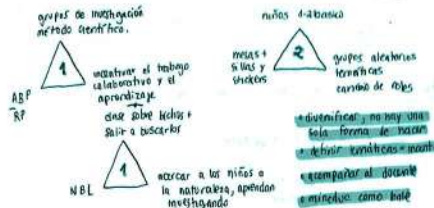 grupos de investigación
método científico.
1
incentivar el trabajo
colaborativo y el
aprendizaje
ABP
clase sobre bichos +
salir a buscarlos
1
NBL
acercar a los niños a
la naturaleza, aprendan
investigando
niños 1-2 básico
mesas +
sillas y
stickers
2
grupos aleatorios
temáticas
cambio de roles
+ diversificar, no hay una
sola forma de hacer
+ definir temáticas +
+ acompañar al docente
+ mineduc como base